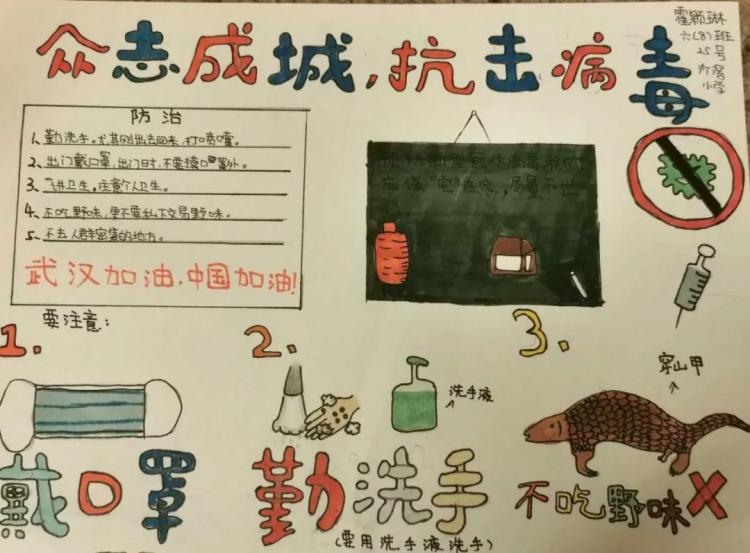 众志成城,抗击病毒
霍颖琳
六(8)班
25号
小学
防治
1、勤洗手。尤其刚出去回来,打喷嚏。
2、出门戴口罩,出门时,不要摸口罩外。
3、讲卫生,注意个人卫生。
4、不吃野味,更不要私下交易野味。
5、不去人群密集的地方。
武汉加油,中国加油!
预防新型冠状病毒我们
应该"宅"在家,尽量不出
要注意:
1.
2.
3.
洗手液
穿山甲
戴口罩
勤洗手
(要用洗手液洗手)
不吃野味X